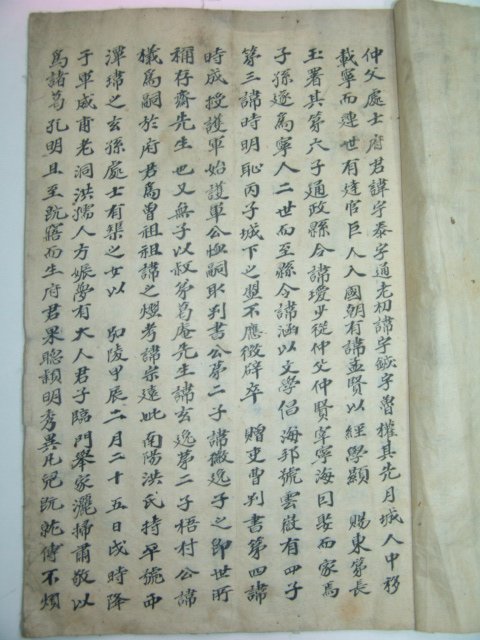 仲父處士府君諱宇泰字通老初諱宇鋧字魯權其先月城人中移
載寧而連世有達官巨人入國朝有諱孟賢以經學顯 賜東第長
玉署其第六子通政縣令諱璦少從仲父仲賢宰寧海因娶而家焉
子孫遂為寧人二世而至縣令諱涵以文學倡海邦號雲嶽有四子
第三諱時明恥丙子城下之盟不應徵辟卒 贈吏曺判書第四諱
時成授護軍始護軍公無嗣取判書公第二子諱徽逸子之即世所
稱存齋先生也又無子以叔弟葛庵先生諱玄逸第二子梧村公諱
檥為嗣於府君為曽祖祖諱之燈考諱宗遠妣南陽洪氏持平號西
潭瑋之玄孫處士有榘之女以 明陵甲辰二月二十五日戌時降
于軍威甫老洞洪孺人方娠學有大人君子臨門舉家灑掃肅敬以
為諸葛孔明且至旣寤而生府君果聰穎明秀異凡兒旣就傅不煩